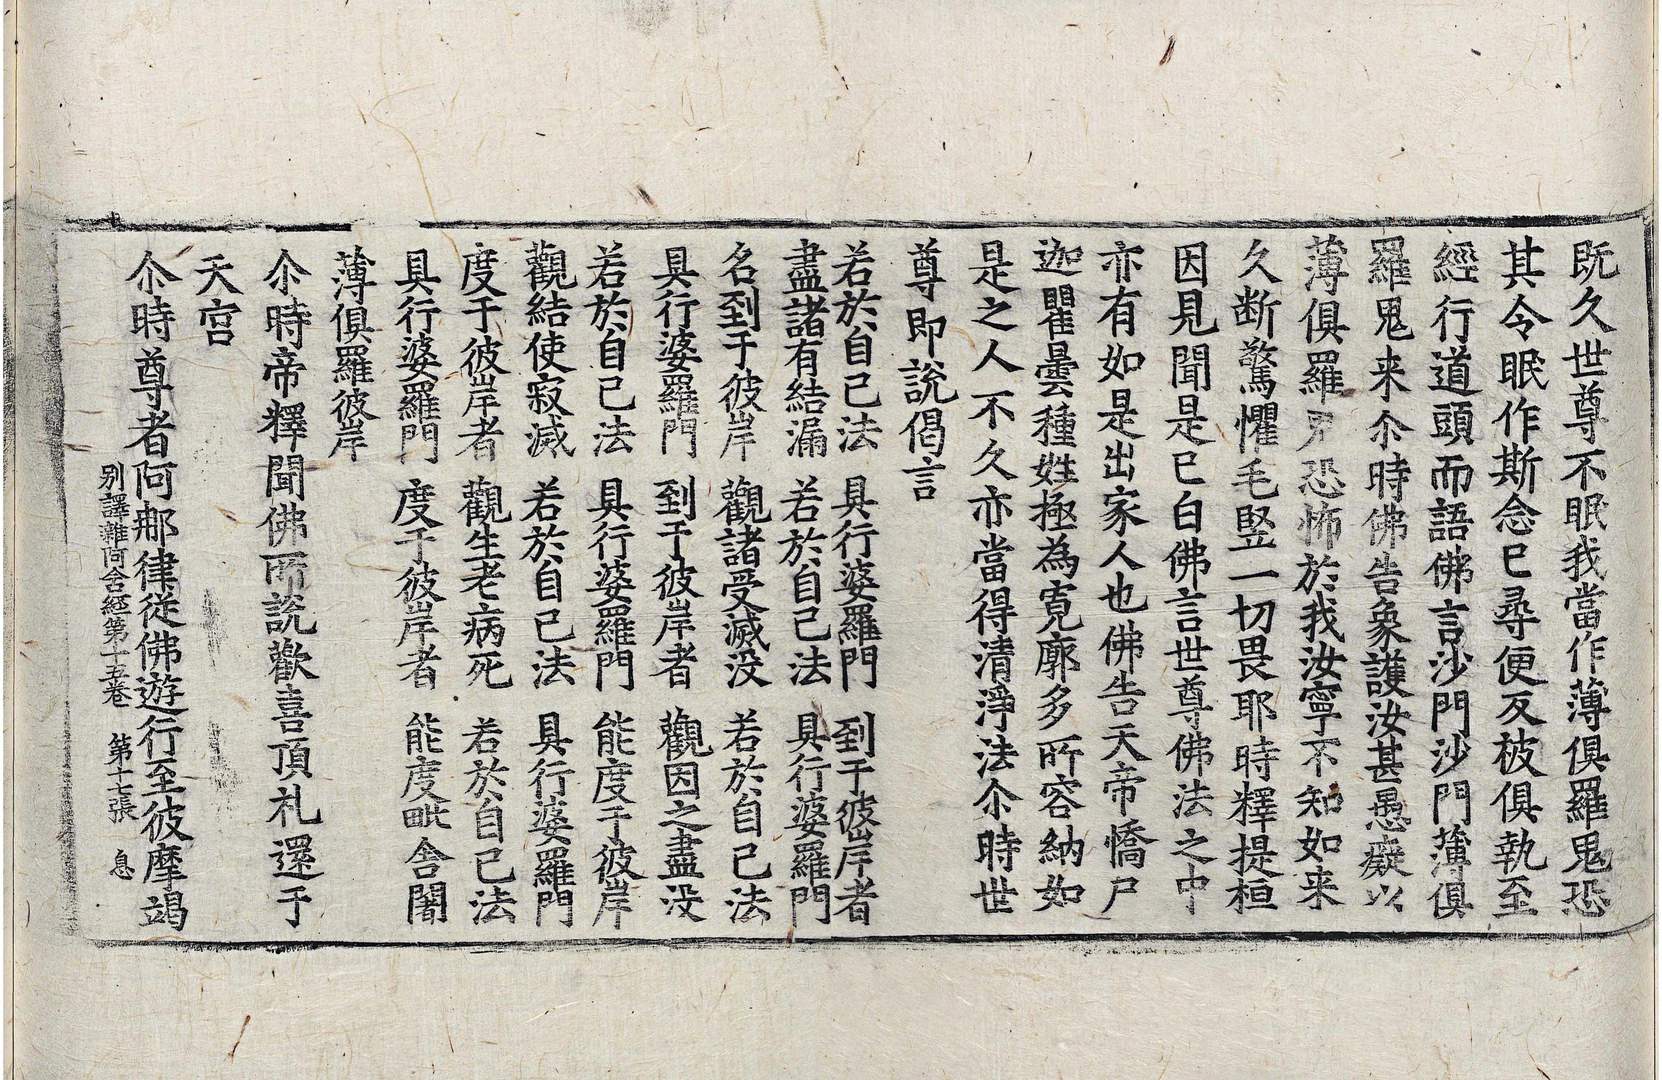 既久世尊不眠我當作薄俱羅鬼恐
其令眠作斯念已尋便反被俱執至
經行道頭而語佛言沙門沙門薄俱
羅鬼来尒時佛告象護汝甚愚癡以
薄俱羅鬼恐怖於我汝寧不知如来
久断驚懼毛竪一切畏耶時釋提桓
因見聞是已白佛言世尊佛法之中
亦有如是出家人也佛告天帝憍尸
迦瞿曇種姓極為寛廓多所容納如
是之人不久亦當得清淨法尒時世
尊即說偈言
若於自己法　具行婆羅門　到于彼岸者
盡諸有結漏　若於自己法　具行婆羅門
名到于彼岸　觀諸受滅没　若於自己法
具行婆羅門　到于彼岸者　觀因之盡没
若於自己法　具行婆羅門　能度于彼岸
觀結使寂滅　若於自己法　具行婆羅門
度于彼岸者　觀生老病死　若於自己法
具行婆羅門　度于彼岸者　能度毗舍闍
薄俱羅彼岸
尒時帝釋聞佛所說歡喜頂礼還于
天宮
尒時尊者阿那律従佛遊行至彼摩竭
别譯雜阿含經第十五卷　第十七張　息